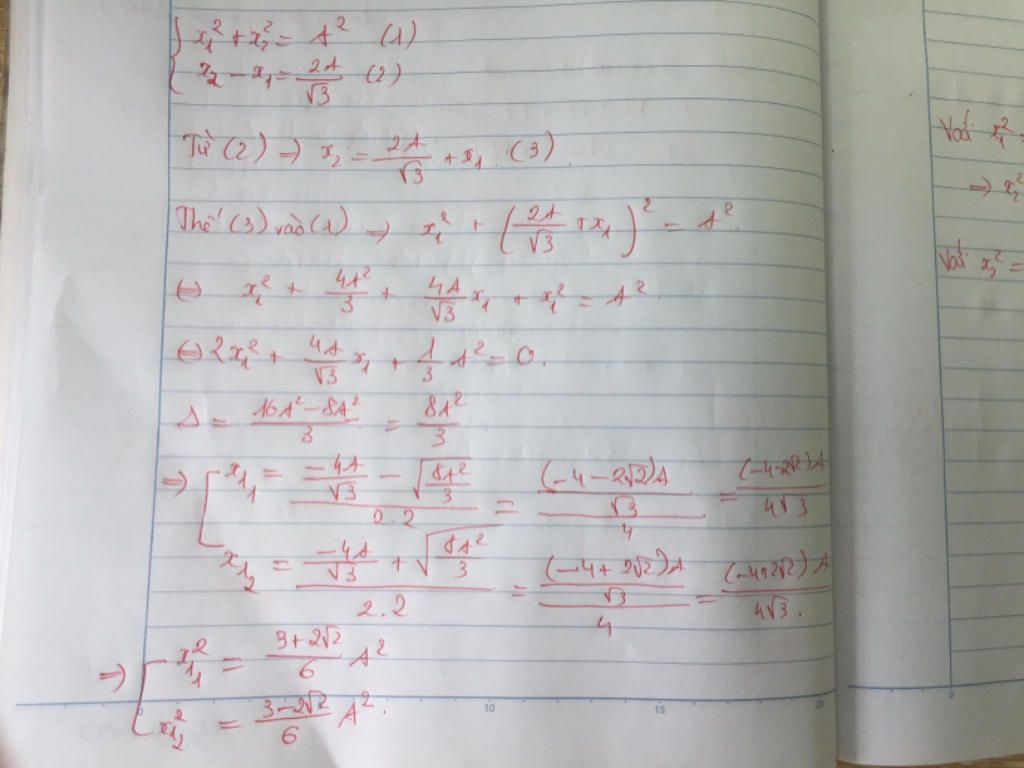 { x₁² + x₂² = A² (1)
x₂ - x₁ = 2A/√3 (2)
Từ (2) ⇒ x₂ = 2A/√3 + x₁ (3)
Thế (3) vào (1) ⇒ x₁² + (2A/√3 + x₁)² = A².
⇔ x₁² + 4A²/3 + 4A/√3 x₁ + x₁² = A².
⇔ 2x₁² + 4A/√3 x₁ + 1/3 A² = 0.
Δ = (16A² - 8A²)/3 = 8A²/3
⇒ [ x₁₁ = (-4A/√3 - √(8A²/3))/(2.2) = ((-4 - 2√2)A/√3)/4 = (-4-2√2)A/(4√3)
x₁₂ = (-4A/√3 + √(8A²/3))/(2.2) = ((-4 + 2√2)A/√3)/4 = (-4+2√2)A/(4√3).
⇒ [ x₁₁² = (3+2√2)/6 A²
x₁₂² = (3-2√2)/6 A².
10 15 20
Với x₁²
⇒ x₂²
Với x₁² =
0